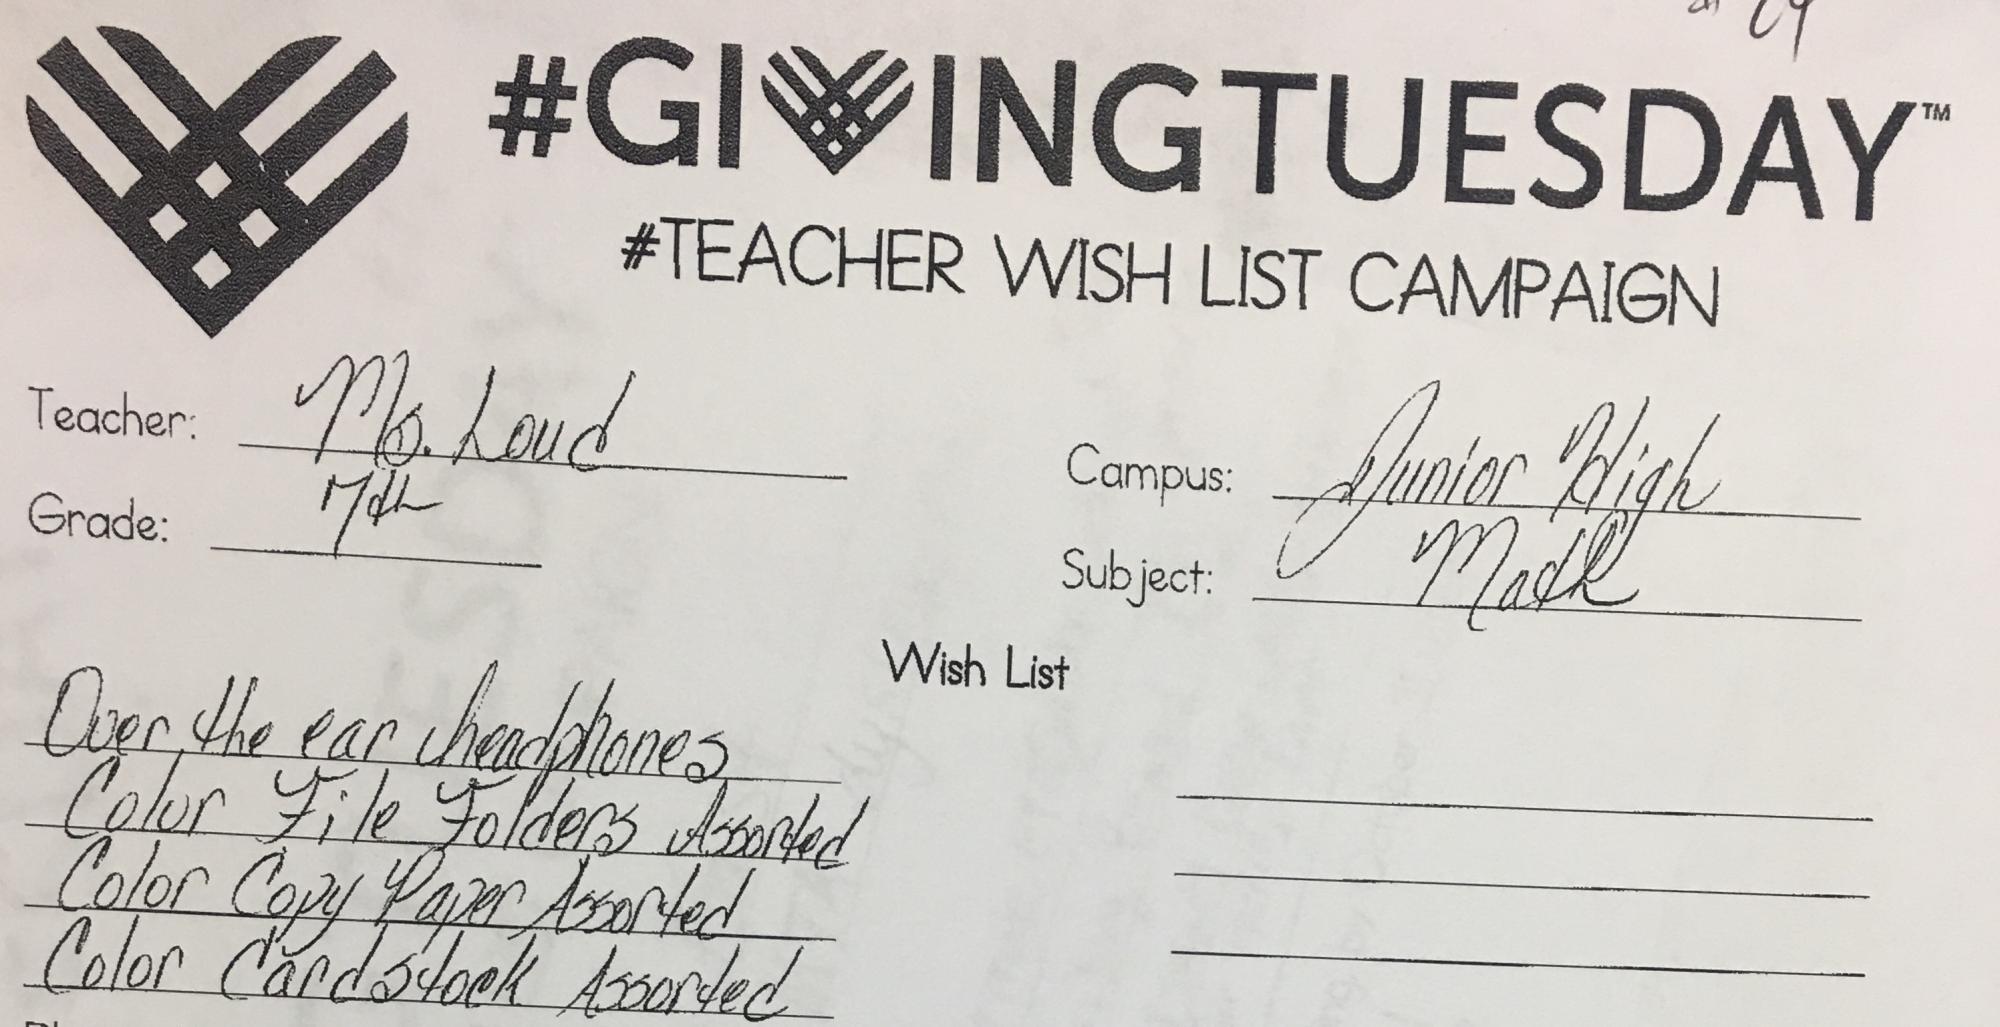 #GIVINGTUESDAY™
#TEACHER WISH LIST CAMPAIGN
Teacher: Ms. Loud
Campus: Junior High
Grade: 7th
Subject: Math
Wish List
Over the ear headphones
Color File Folders Assorted
Color Copy Paper Assorted
Color Cardstock Assorted